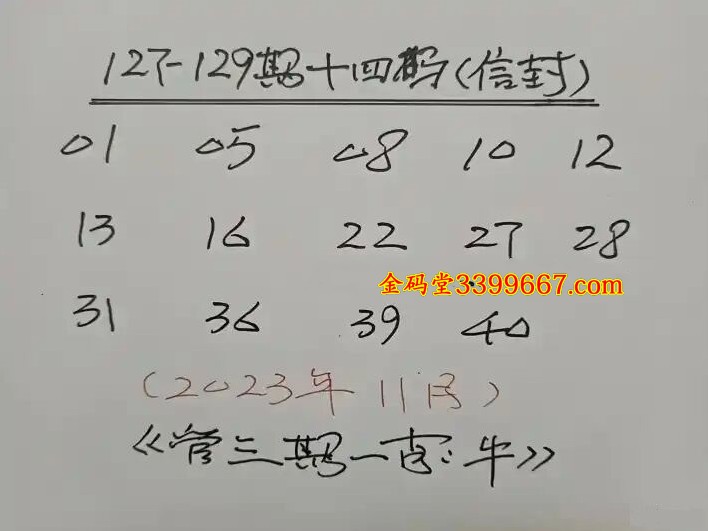 127-129期十四码(信封)
01 05 08 10 12
13 16 22 27 28
金码堂3399667.com
31 36 39 40
(2023年11月)
《管三期一字:牛》